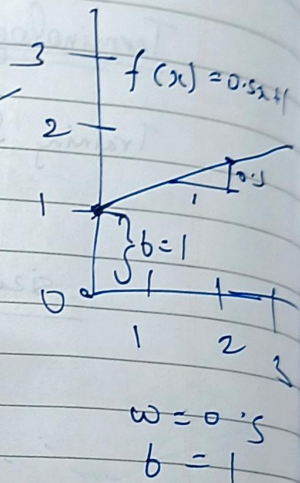 3
f(x) = 0.5x+1
2
0.5
1
1
b=1
0
1 2 3
w = 0.5
b = 1